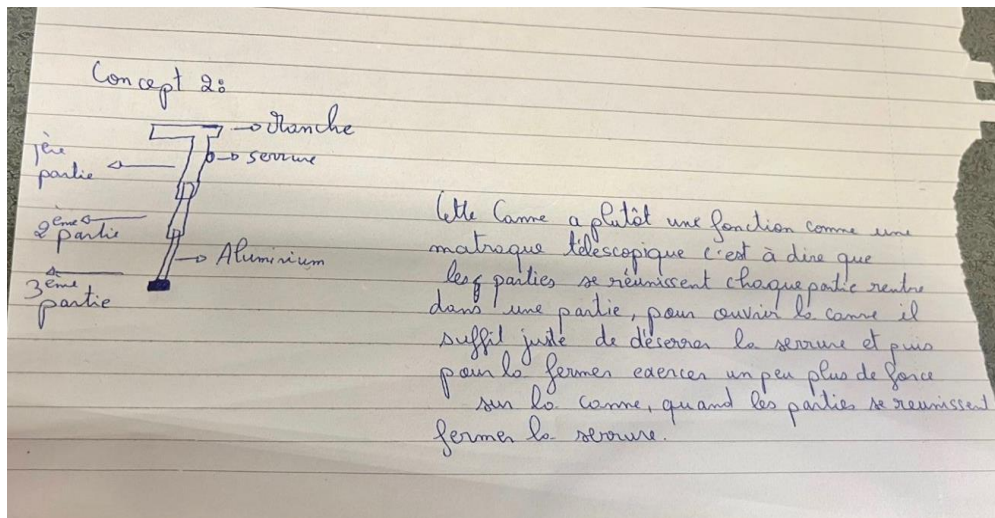 Concept 2:
Manche
serrure
1ère
partie
2ème
partie
Aluminium
3ème
partie
Cette Canne a plutôt une fonction comme une
matraque téléscopique c'est à dire que
les parties se réunissent chaque partie rentre
dans une partie, pour ouvrir la canne il
suffit juste de déserrer la serrure et puis
pour la fermer exercer un peu plus de force
sur la canne, quand les parties se reunissent
fermer la serrure.